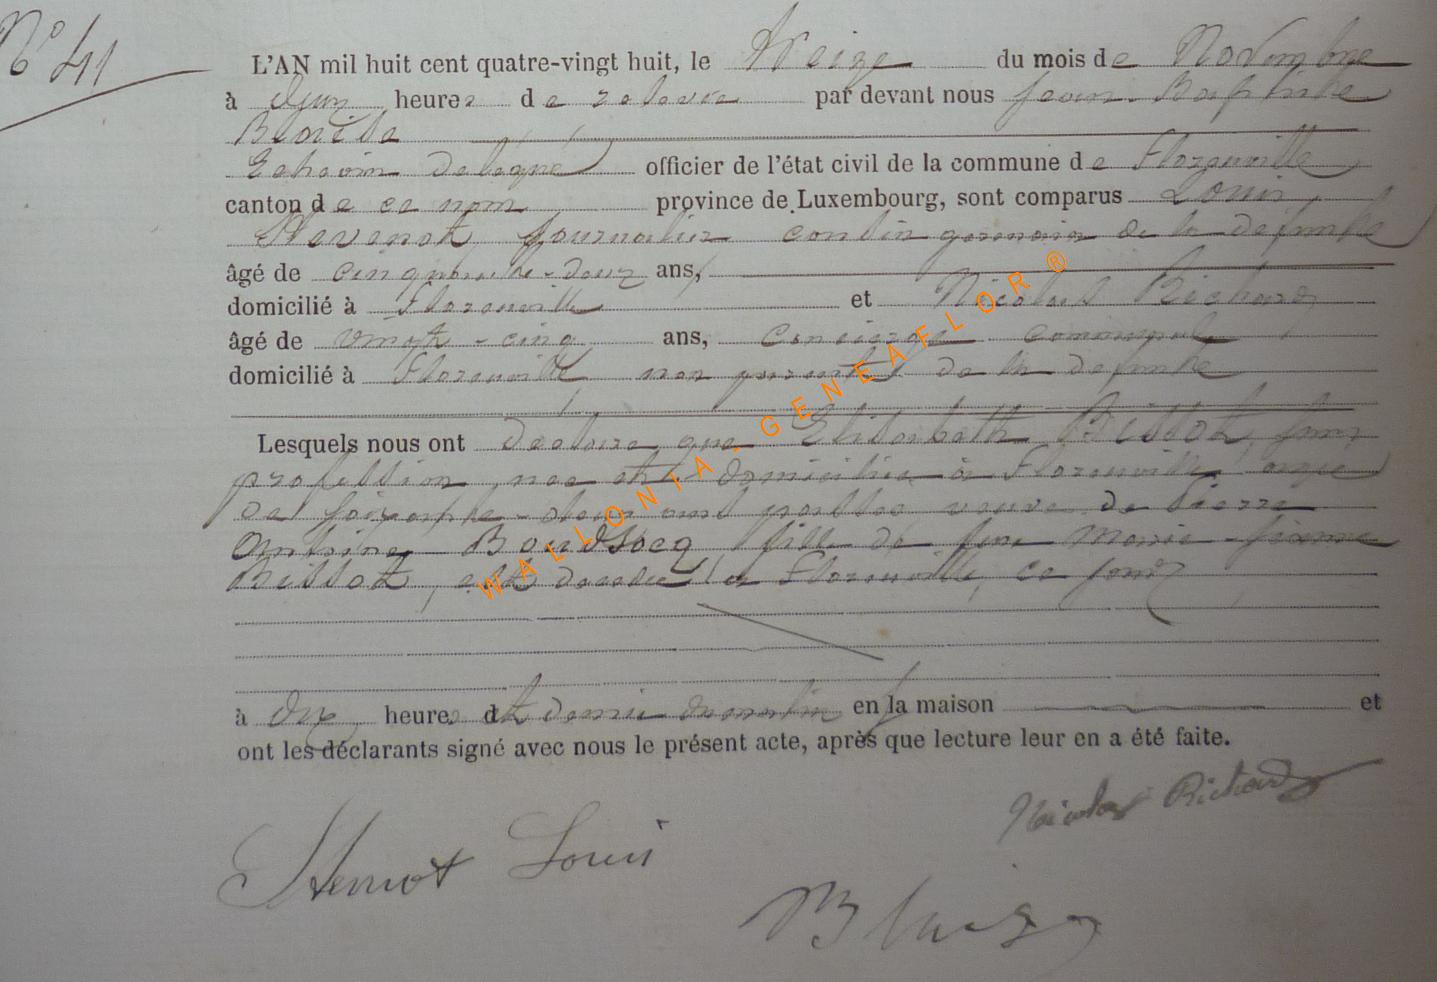 N° 41
L'AN mil huit cent quatre-vingt huit, le treize du mois de Novembre
à deux heures de relevée par devant nous Jean-Baptiste
Blaise
Echevin délégué officier de l'état civil de la commune de Florenville
canton de ce nom province de Luxembourg, sont comparus Louis
journalier cousin germain de la défunte
âgé de cinquante-deux ans,
domicilié à Florenville et Nicolas Richard
âgé de vingt-cinq ans, concierge communal
domicilié à Florenville non parent de la défunte
Lesquels nous ont déclaré que Elisabeth Bissot, sans
profession, née et domiciliée à Florenville, âgée
de soixante-deux ans passés, veuve de Pierre
Antoine Boudsocq fille de feue Marie-Jeanne
Bissot, est décédée à Florenville, ce jour
à dix heures et demie du matin en la maison et
ont les déclarants signé avec nous le présent acte, après que lecture leur en a été faite.
Nicolas Richard
Louis
Blaise
WALLONIA - GENEAFLOR ®